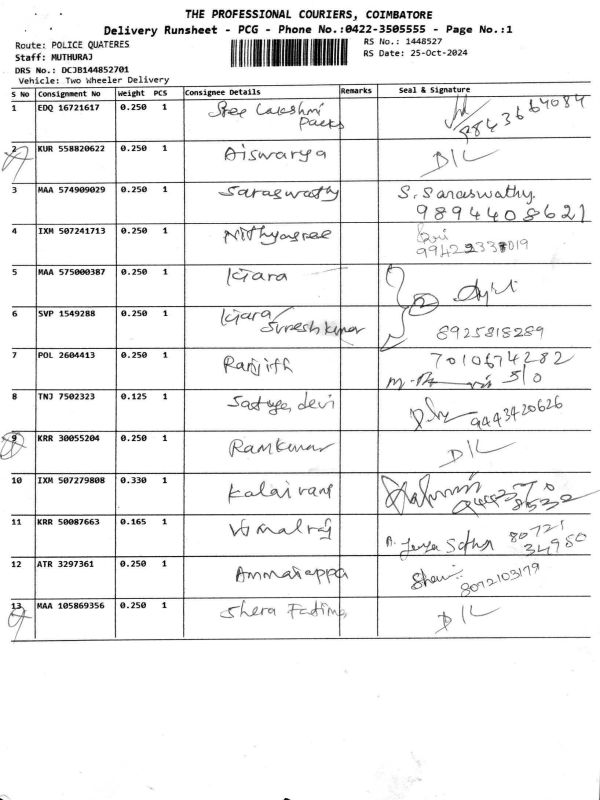 THE PROFESSIONAL COURIERS, COIMBATORE
Delivery Runsheet - PCG - Phone No.:0422-3505555 - Page No.:1
Route: POLICE QUATERES
RS No.: 1448527
Staff: MUTHURAJ
RS Date: 25-Oct-2024
DRS No.: DCJB144852701
Vehicle: Two Wheeler Delivery
S No Consignment No Weight PCS Consignee Details Remarks Seal & Signature
1 EDQ 16721617 0.250 1 Sree Lakshmi
Packs
2 KUR 558820622 0.250 1 Aiswarya D/L
3 MAA 574909029 0.250 1 Saraswathy S. Saraswathy.
9894408621
4 IXM 507241713 0.250 1 Nithyasree
5 MAA 575000387 0.250 1 Kiara
2
6 SVP 1549288 0.250 1 Kiara/
Sureshkumar 8925818289
7 POL 2604413 0.250 1 Ranjith 7010674282
S/O
8 TNJ 7502323 0.125 1 Sathya devi 9443420626
9 KRR 30055204 0.250 1 Ramkumar D/L
10 IXM 507279808 0.330 1 Kalaivani
8532
11 KRR 50087663 0.165 1 Vimalraj 80721
34980
12 ATR 3297361 0.250 1 Ammaiappa
8072103179
13 MAA 105869356 0.250 1 Shera Fatima D/L